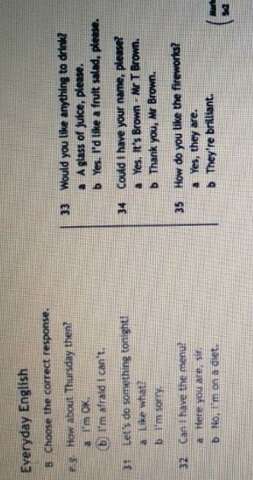 Everyday English
8 Choose the correct response.
e.g. How about Thursday then?
a I'm OK.
b I'm afraid I can't.
31 Let's do something tonight!
a Like what?
b I'm sorry.
32 Can I have the menu?
a Here you are, sir.
b No, I'm on a diet.
33 Would you like anything to drink?
a A glass of juice, please.
b Yes. I'd like a fruit salad, please.
34 Could I have your name, please?
a Yes. It's Brown - Mr T Brown.
b Thank you, Mr Brown.
35 How do you like the fireworks?
a Yes, they are.
b They're brilliant.